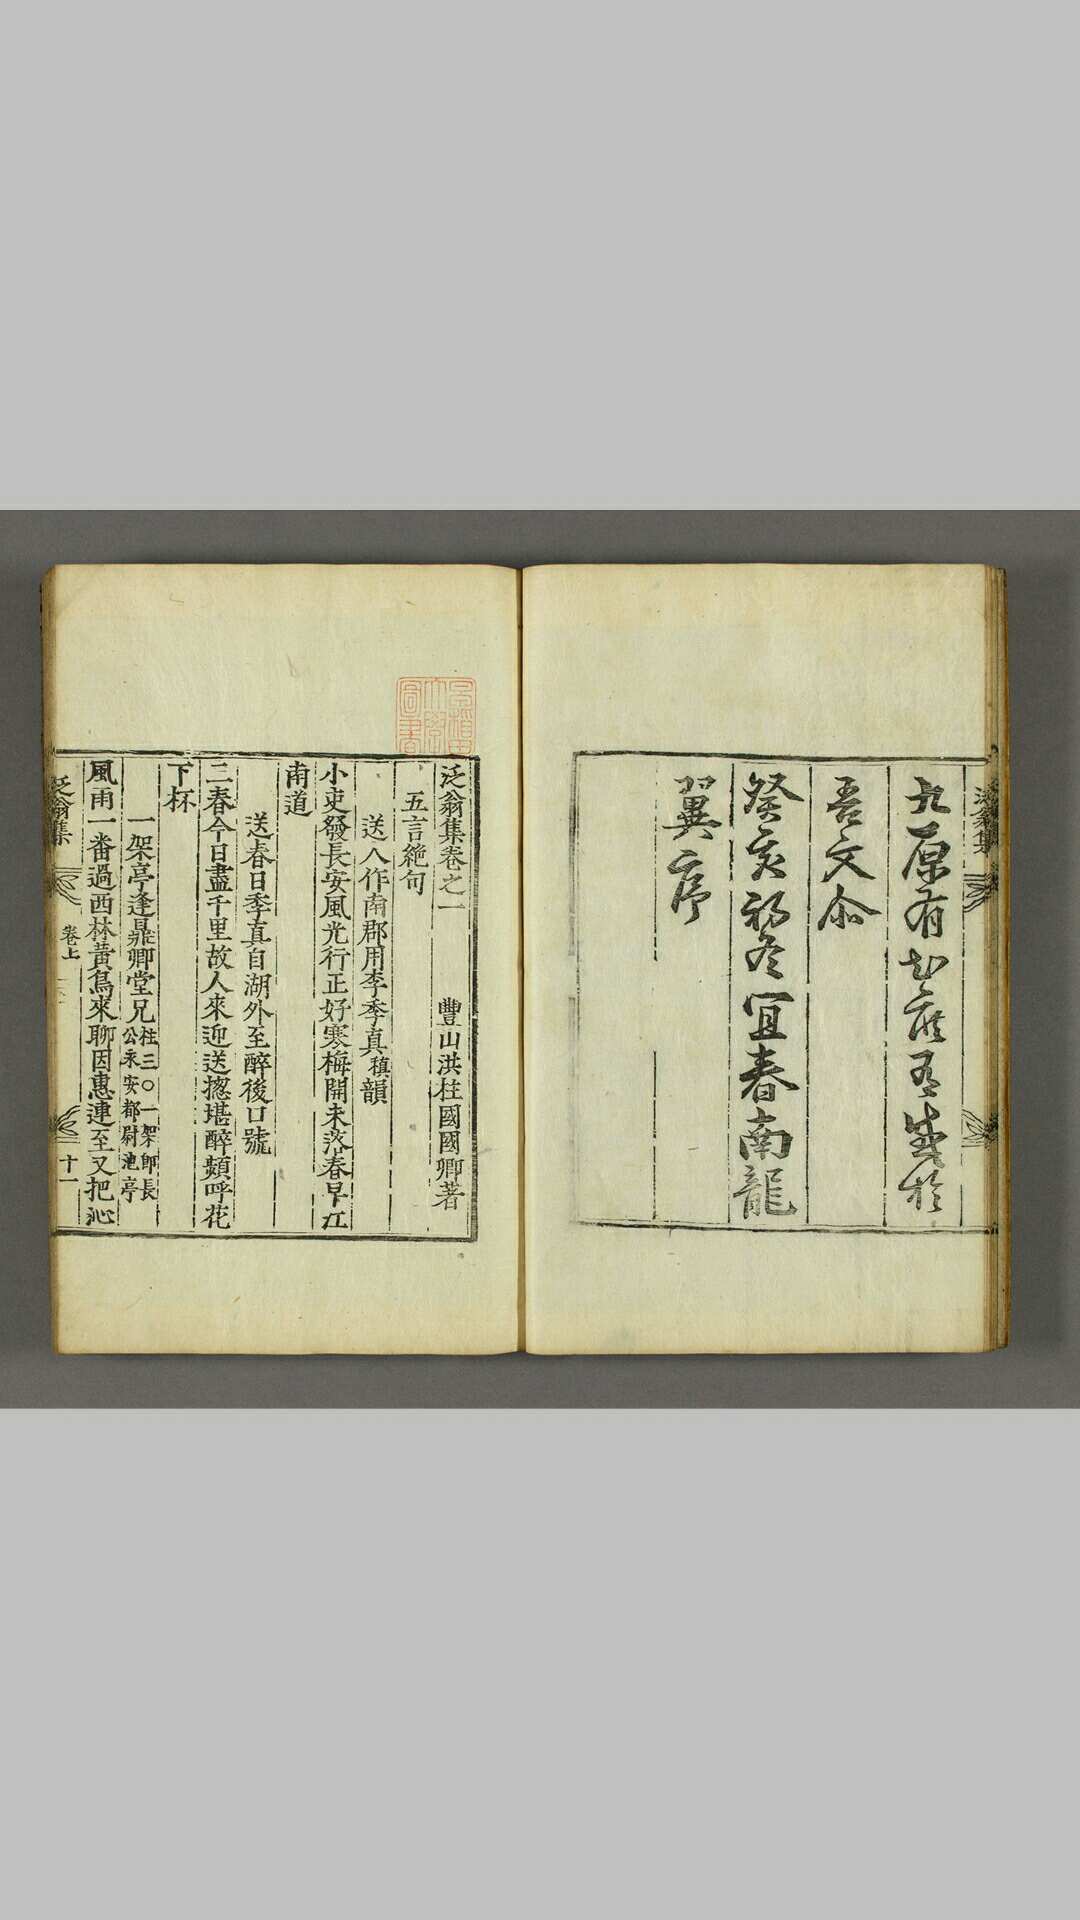 泛翁集
九原有知庶有感於
吾文余
癸亥初冬宜春南龍
翼序
早稻田大學圖書
泛翁集卷之一 豐山洪柱國國卿著
五言絶句
送人作南郡用李季真稹韻
小吏發長安風光行正好寒梅開未落春早江
南道
送春日季真自湖外至醉後口號
三春今日盡千里故人來迎送揔堪醉頻呼花
下杯
一架亭逢鼎卿堂兄柱三〇一架即長
公永安都尉池亭
風雨一番過西林黃鳥來聊因惠連至又把沁
泛翁集 卷上 十一